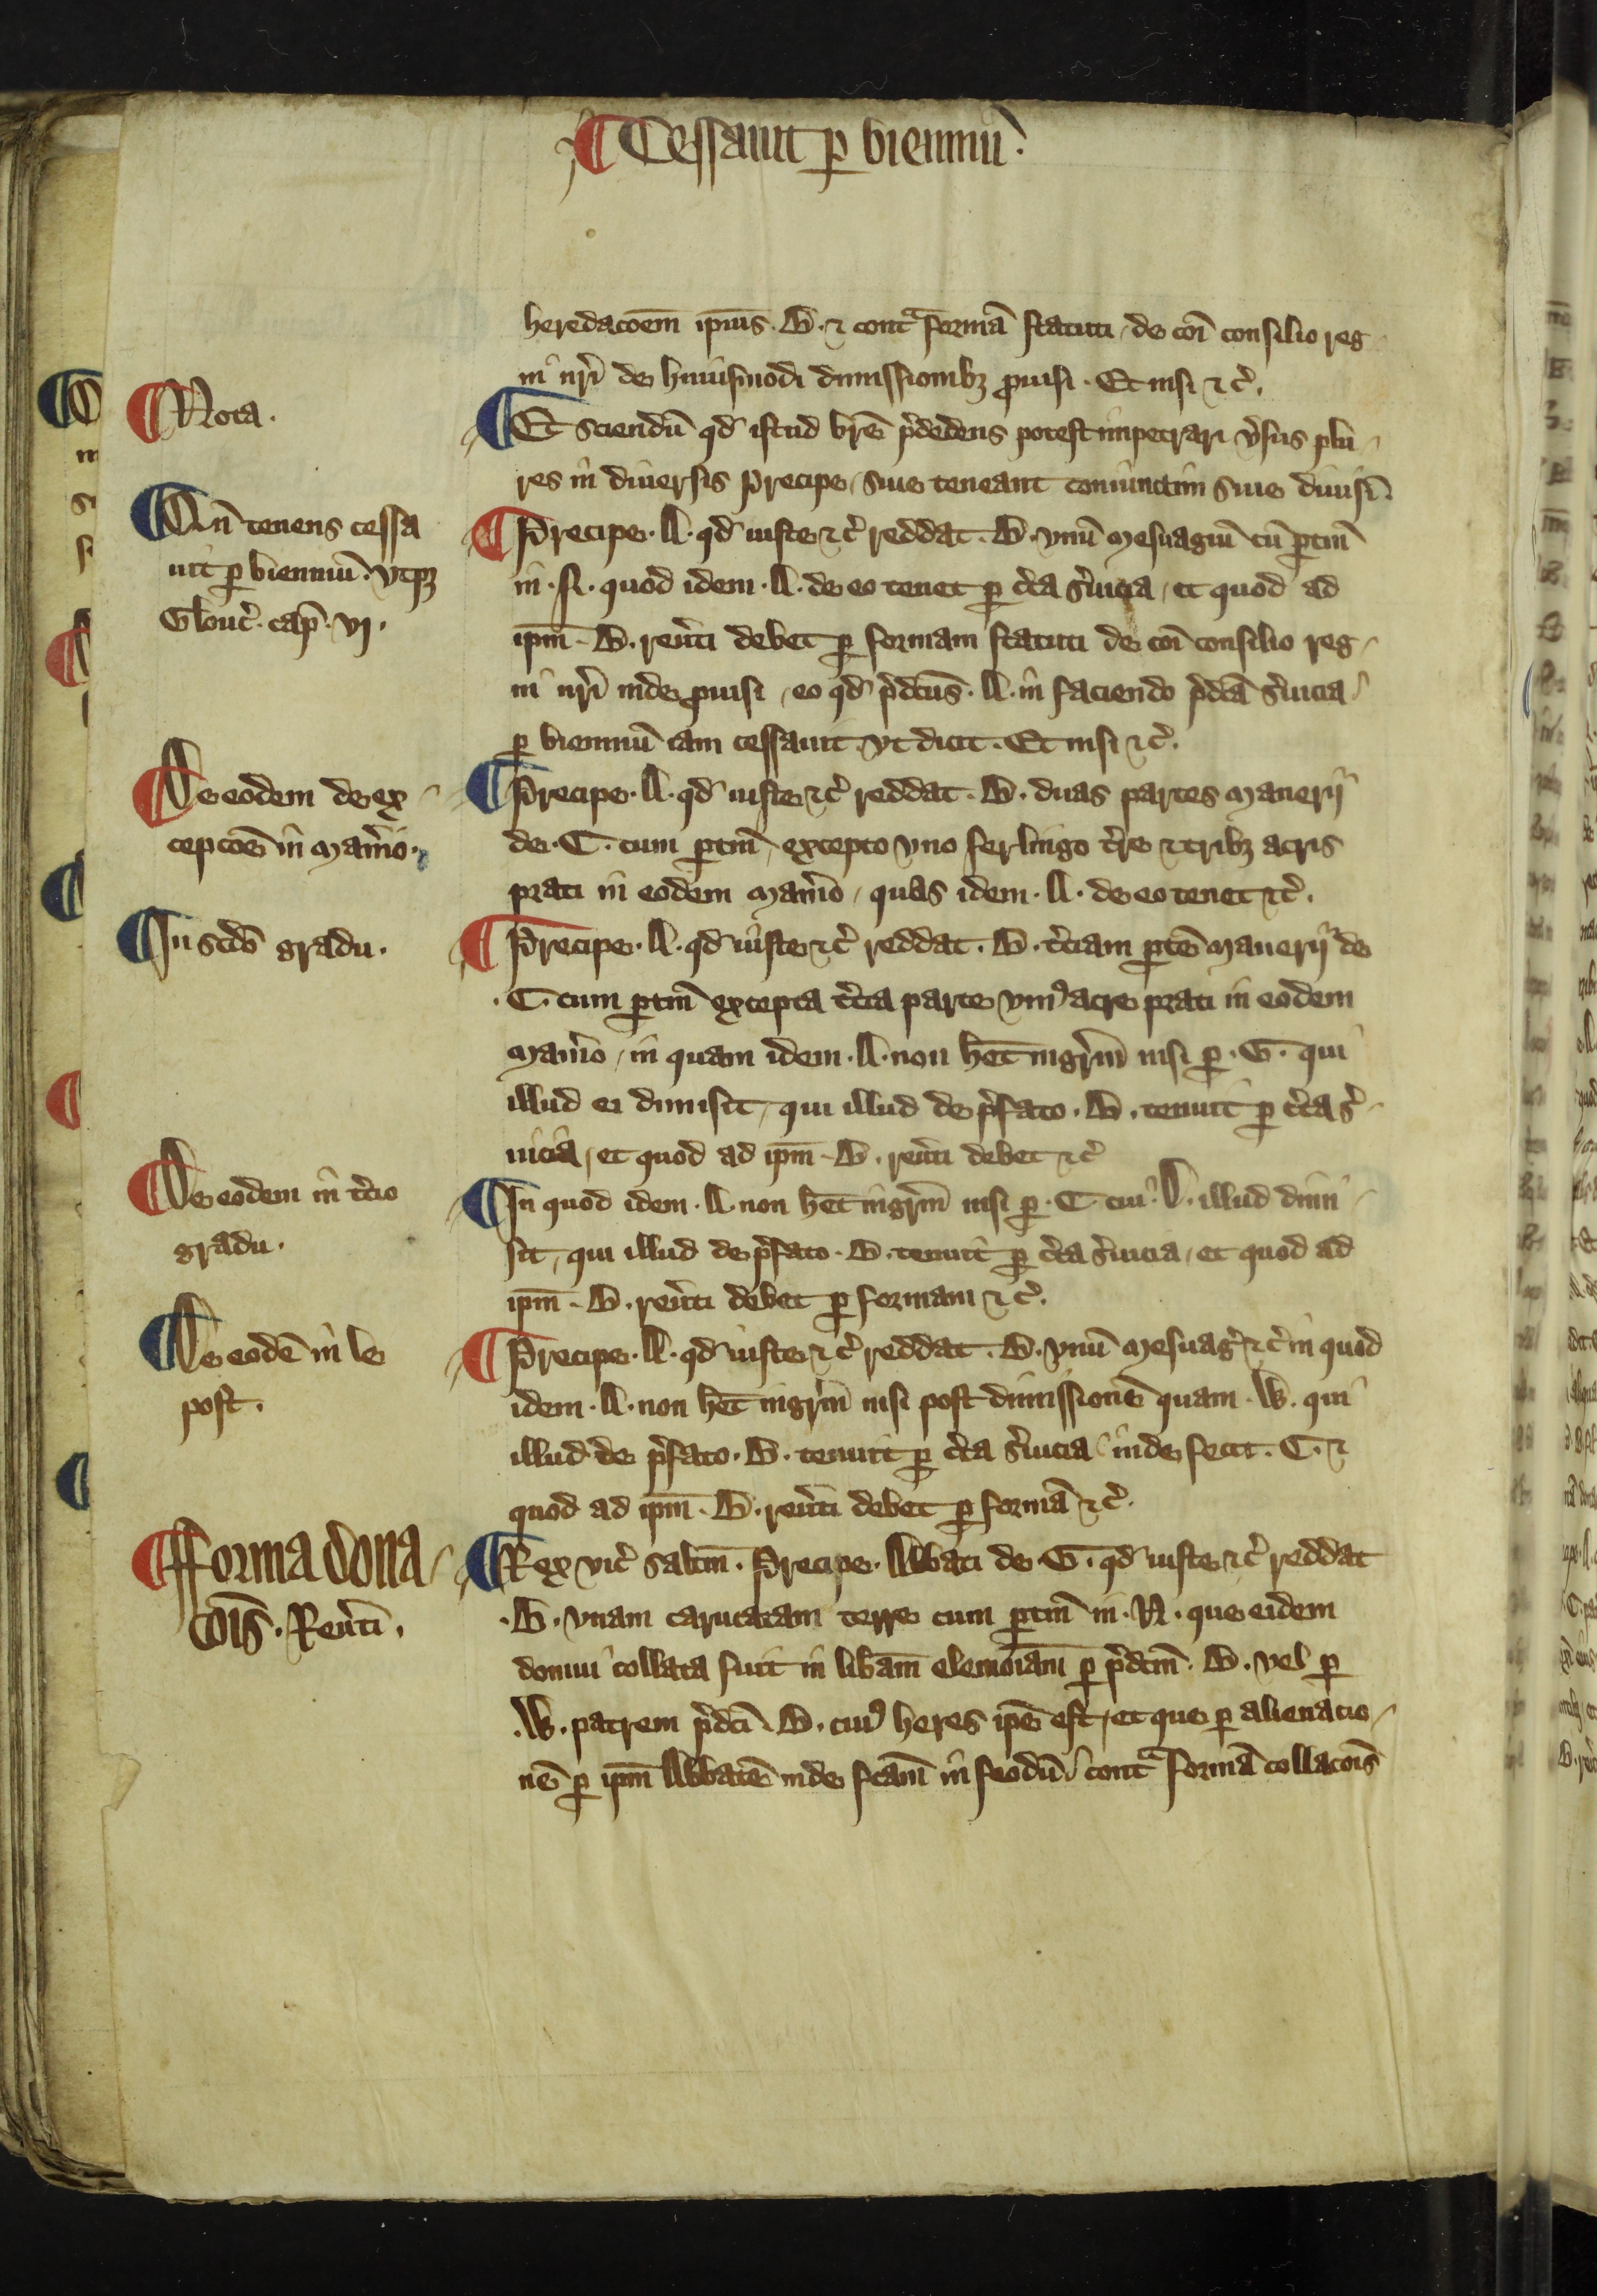 ¶ Cessauit ꝑ bienniū.
heredacōem ip̄ius. B. ⁊ contᵃ formā statuti / de cōi consilio reg
ni nr̄i de huiusmodi dimissionibꝫ ꝓuisi. Et nisi ⁊c̄.
¶ Nota.
¶ Et sciendū qd̄ istud br̄e p̄dedens potest impetrari v̄sus plu-
res in diuersis Precipe / siue teneant coniunctim siue diuisī.
¶ Qn̄ tenens cessa
uit ꝑ bienniū. vtpꝫ
Glouc̄. cap̄. vj.
¶ Precipe. A. qd̄ iuste ⁊c̄ reddat. B. vnū mesuagiū cū ꝑtin̄
in. N. quod idem. A. de eo tenet ꝑ c̄ta s̄uicia / et quod ad
ip̄m. B. reut̄i debet ꝑ formam statuti de cōi consilio reg-
ni nr̄i inde ꝓuisi / eo qd̄ p̄dc̄us. A. in faciendo p̄dc̄a s̄uicia
ꝑ bienniū iam cessauit vt dicit. Et nisi ⁊c̄.
¶ De eodem de ex-
cepcōe in Man̄io.
¶ Precipe. A. qd̄ iuste ⁊c̄ reddat. B. duas partes Manerij
de. C. cum ꝑtin̄ / excepto vno ferlingo t̄re ⁊ tribꝫ acris
prati in eodem Man̄io / quas idem. A. de eo tenet ⁊c̄.
¶ In sc̄do gradu.
¶ Precipe. A. qd̄ iuste ⁊c̄ reddat. B. t̄ciam ꝑtē Manerij de
. C. cum ꝑtin̄ excepta t̄cia parte vniꝰ acre prati in eodem
Man̄io / in quam idem. A. non h̄et ingr̄m nisi ꝑ. G. qui
illud ei dimisit / qui illud de p̄fato. B. tenuit ꝑ c̄ta s̄-
uicia / et quod ad ip̄m. B. reut̄i debet ⁊c̄
¶ De eodem in t̄cio
gradu.
¶ In quod idem. A. non h̄et ingr̄m nisi ꝑ. C. cui. D. illud dimi-
sit / qui illud de p̄fato. B. tenuit ꝑ c̄ta s̄uicia / et quod ad
ip̄m. B. reut̄i debet ꝑ formam ⁊c̄.
¶ De eodē in le
post.
¶ Precipe. A. qd̄ iuste ⁊c̄ reddat. B. vnū Mesuaḡ ⁊c̄ in quod
idem. A. non h̄et ingr̄m nisi post dimissionē quam. W. qui
illud de p̄fato. B. tenuit ꝑ c̄ta s̄uicia inde fecit. C. ⁊
quod ad ip̄m. B. reut̄i debet ꝑ formā ⁊c̄.
¶ fforma dona-
cōis. Reut̄i.
¶ Rex vic̄ salt̄m. Precipe. Abbati de. G. qd̄ iuste ⁊c̄ reddat
. B. vnam carucatam terre cum ꝑtin̄ in. N. que eidem
domui collata fuit in lib̄am elemōiam ꝑ p̄dc̄m. B. vel ꝑ
. W. patrem p̄dc̄i. B. cuiꝰ heres ip̄e est / et que ꝑ alienacio-
nē ꝑ ip̄m Abbatē inde fc̄am in feodū contᵃ formā collacōis